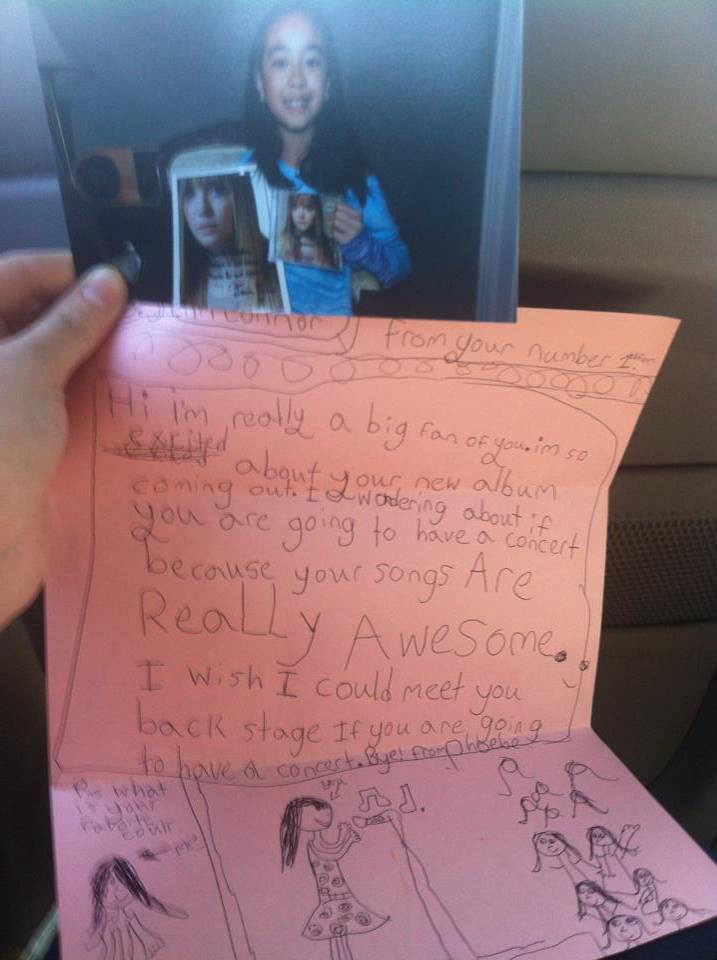 Connor
From your number 1 fan
Hi i'm really a big fan of you. im so
exited about your new album
coming out. I wondering about if
you are going to have a concert
because your songs Are
ReaLLy Awesome.
I wish I could meet you
back stage If you are going
to have a concert. Bye! from Phoebe
P.s what
is your
Faborite
coulr
me
you